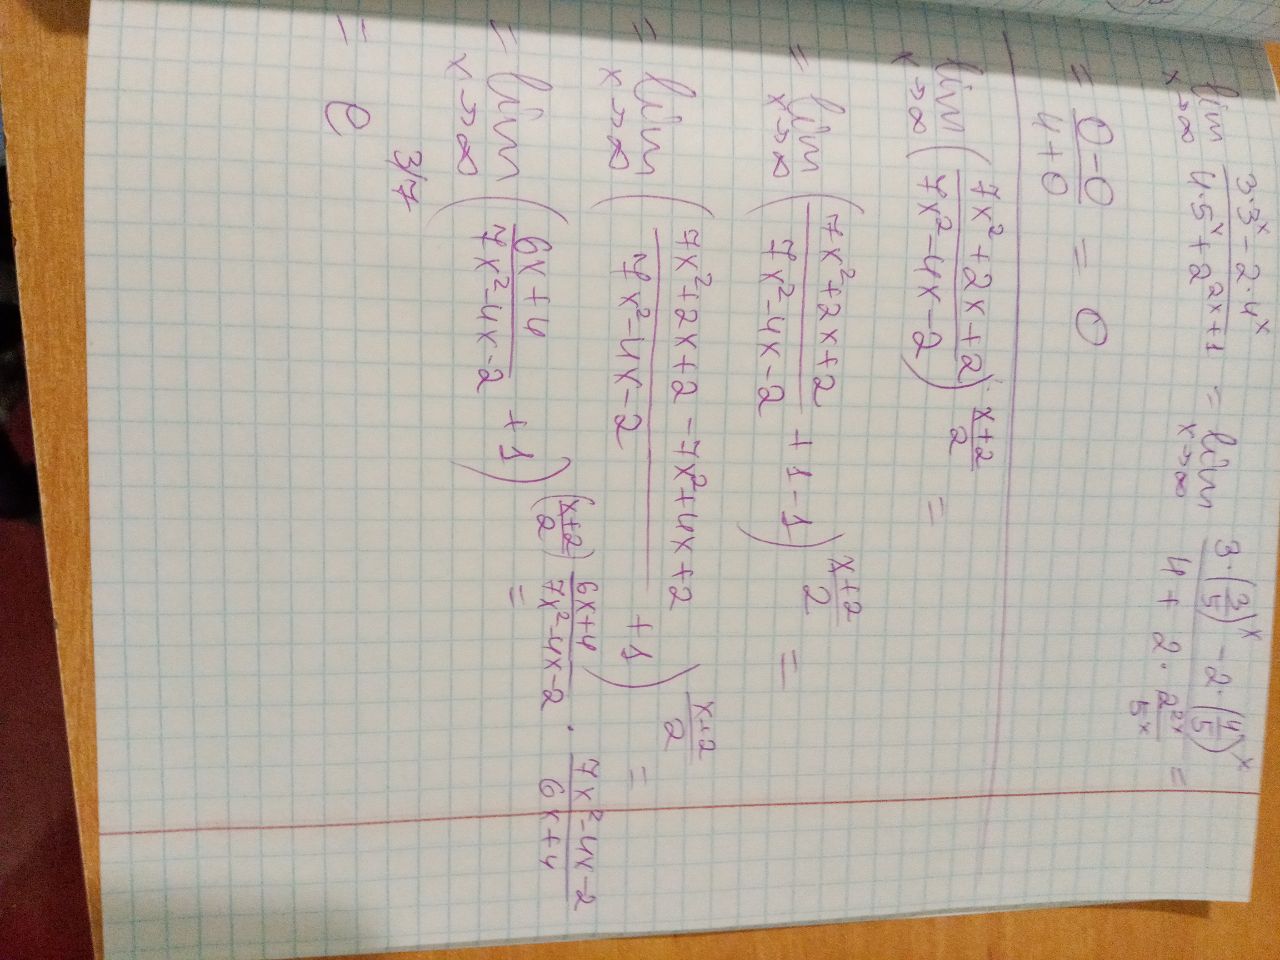 lim x→∞ (3·3^x − 2·4^x)/(4·5^x + 2^(2x+1)) = lim x→∞ (3·(3/5)^x − 2·(4/5)^x)/(4 + 2·2^(2x)/5^x) =
= (0−0)/(4+0) = 0
lim x→∞ ((7x²+2x+2)/(7x²−4x−2))^((x+2)/2) =
= lim x→∞ ((7x²+2x+2)/(7x²−4x−2) + 1 − 1)^((x+2)/2) =
= lim x→∞ ((7x²+2x+2−7x²+4x+2)/(7x²−4x−2) + 1)^((x+2)/2) =
= lim x→∞ ((6x+4)/(7x²−4x−2) + 1)^(((x+2)/2) (6x+4)/(7x²−4x−2) · (7x²−4x−2)/(6x+4)) =
= e^(3/7)